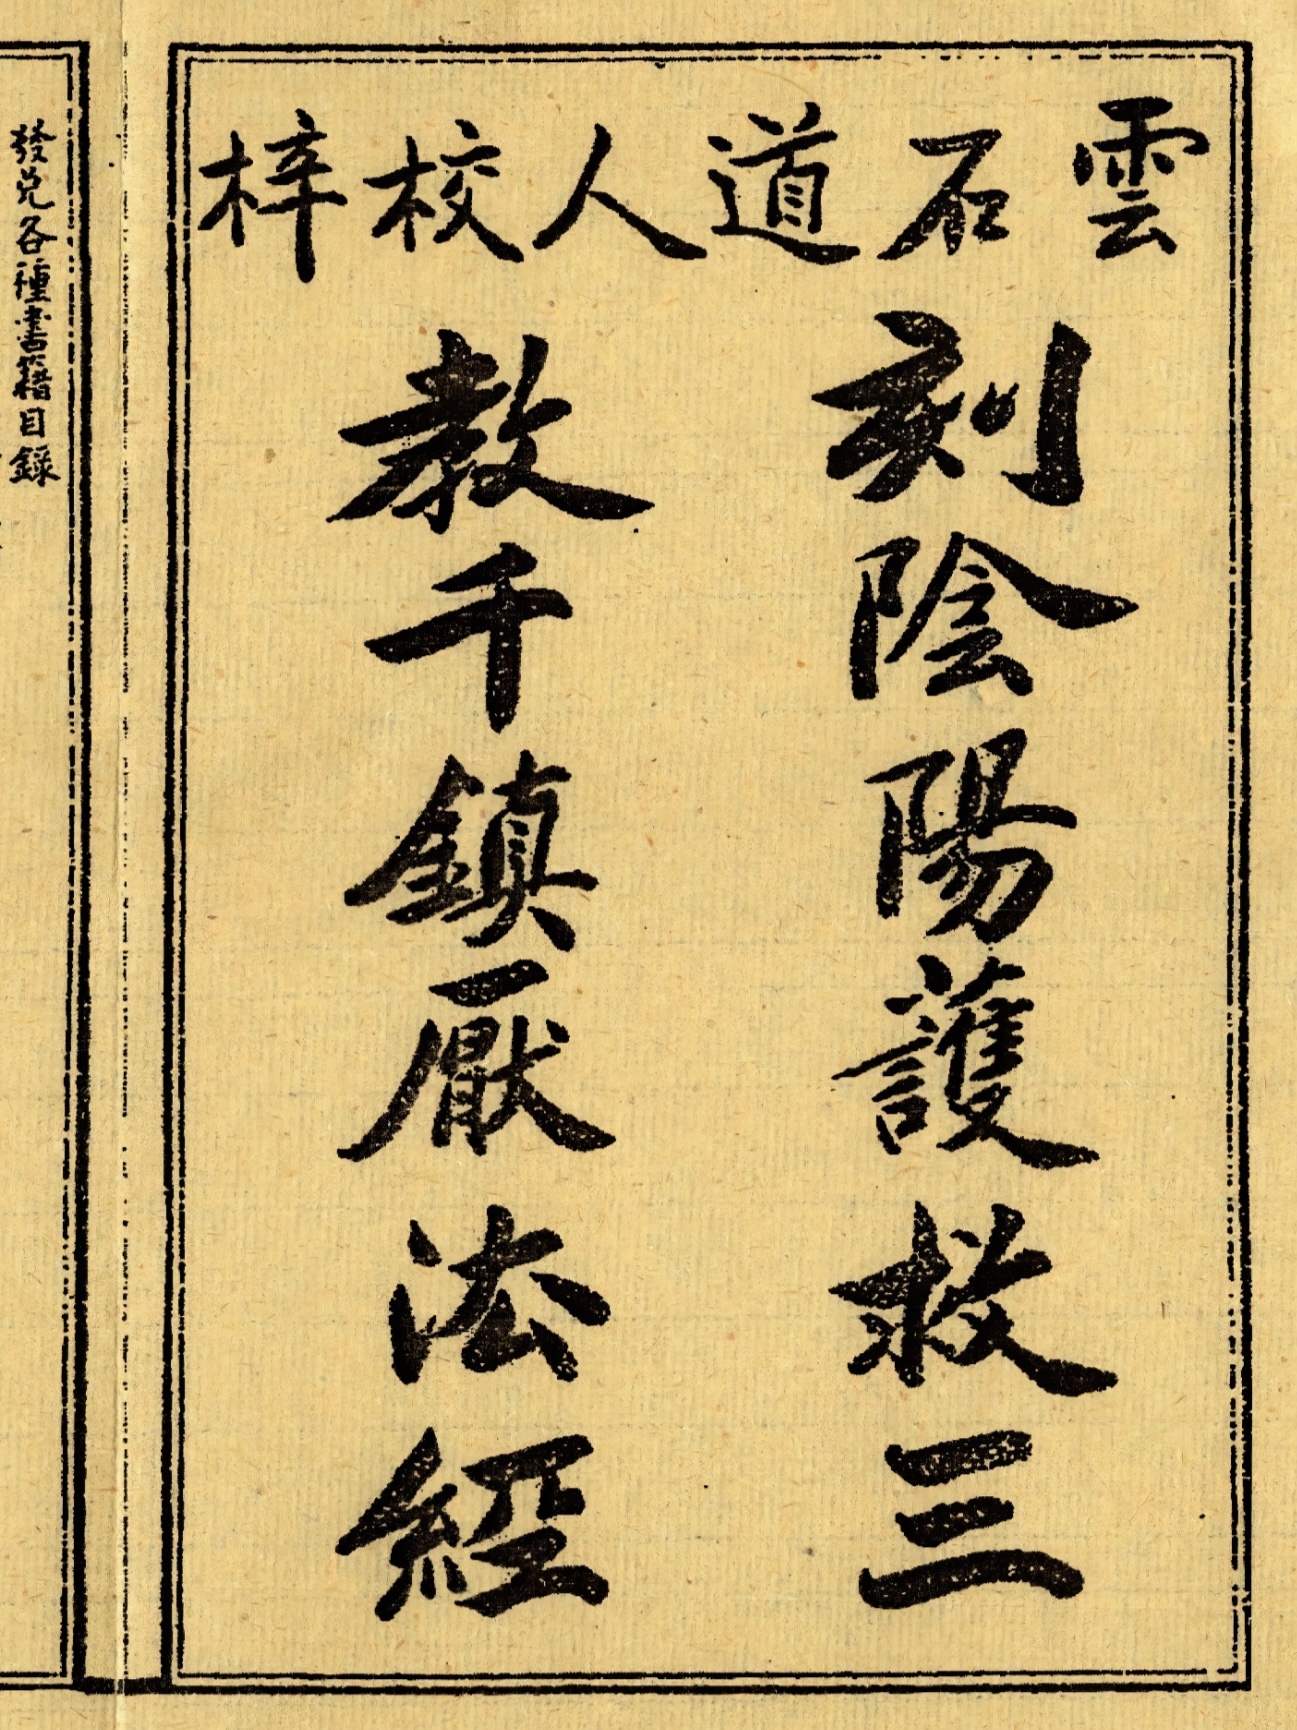 雲石道人校梓
刻陰陽護救三
教千鎮厭法經
發兌各種書籍目錄